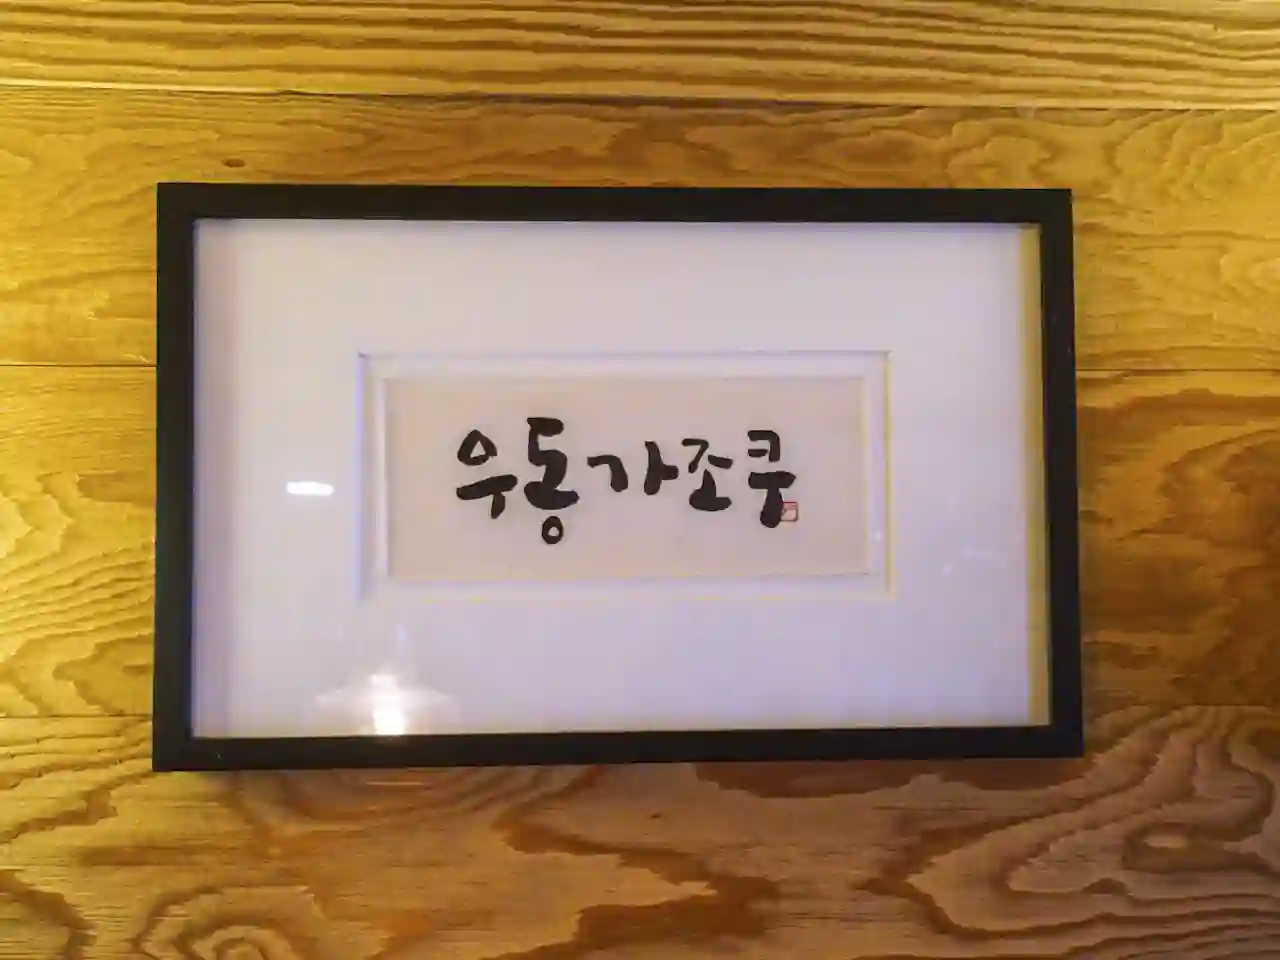 우동가조쿠